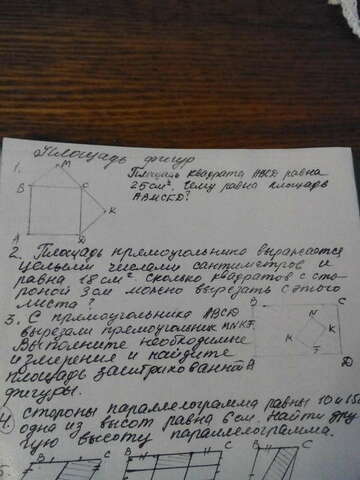 Площадь фигур
1.
M
B
C
K
A
D
Площадь квадрата ABCD равна
25 см². Чему равна площадь
ABMCKD?
2. Площадь прямоугольника выражается
целыми числами сантиметров и
равна 18 см². Сколько квадратов с сто-
роной 3см можно вырезать с этого
листа?
3. С прямоугольника ABCD
вырезали прямоугольник MNKF.
Выполните необходимые
измерения и найдите
площадь заштрихованной
фигуры.
B
C
N
K
M
A
D
4. стороны параллелограмма равны 10 и 15
одна из высот равна 6 см. Найти дру
гую высоту параллелограмма.
5.
B
H
C
B
H
C
B
C